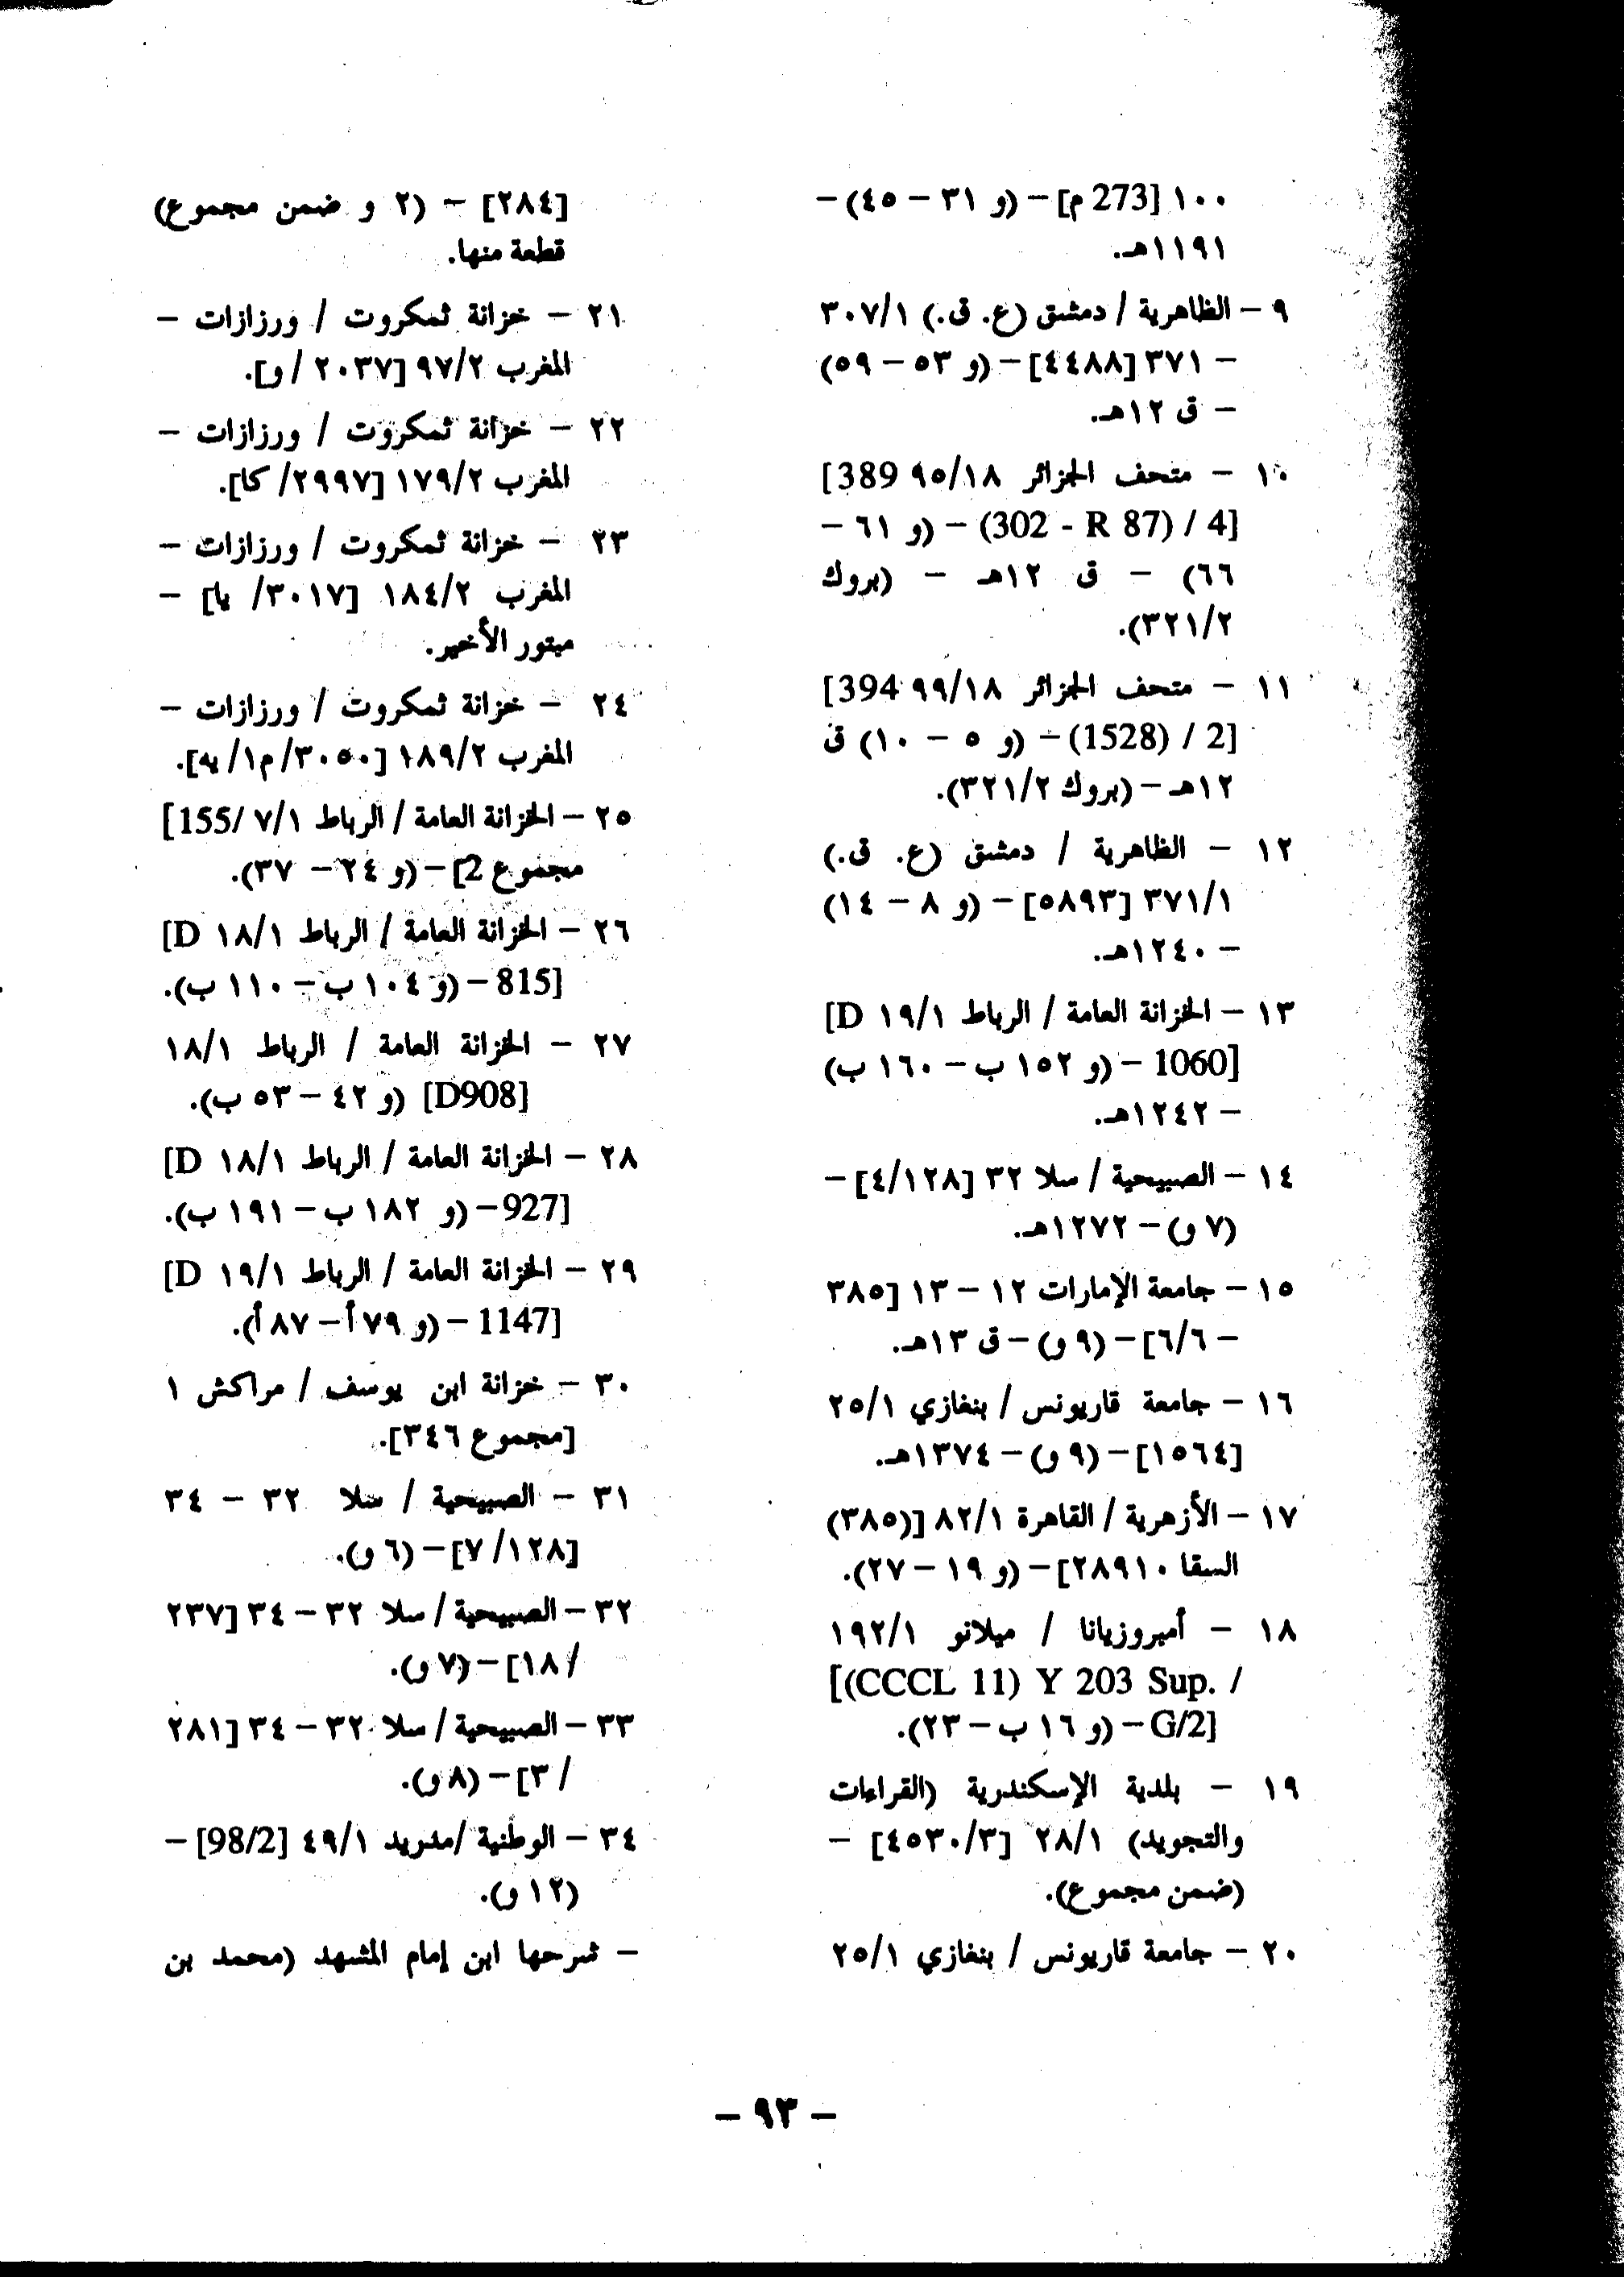 ١٠٠ [273 م] – (و ٣١ – ٤٥) –
١١٩١هـ.
٩ – الظاهرية / دمشق (ع. ق.) ٣٠٧/١
– ٣٧١ [٤٤٨٨] – (و ٥٣ – ٥٩)
– ق ١٢هـ.
١٠ – متحف الجزائر ٩٥/١٨ [389
302 - R 87) / 4] – (و ٦١ –
٦٦) – ق ١٢هـ – (بروك
٣٢١/٢).
١١ – متحف الجزائر ٩٩/١٨ [394
(1528) / 2] – (و ٥ – ١٠) ق
١٢هـ – (بروك ٣٢١/٢).
١٢ – الظاهرية / دمشق (ع. ق.)
٣٧١/١ [٥٨٩٣] – (و ٨ – ١٤)
– ١٢٤٠هـ.
١٣ – الخزانة العامة / الرباط ١٩/١ [D
1060] – (و ١٥٢ ب – ١٦٠ ب)
– ١٢٤٢هـ.
١٤ – الصبيحية / سلا ٣٢ [٤/١٢٨] –
(٧ و) – ١٢٧٢هـ.
١٥ – جامعة الإمارات ١٢ – ١٣ [٣٨٥
– ٦/٦] – (٩ و) – ق ١٣هـ.
١٦ – جامعة قاريونس / بنغازي ٢٥/١
[١٥٦٤] – (٩ و) – ١٣٧٤هـ.
١٧ – الأزهرية / القاهرة ٨٢/١ [(٣٨٥)
السقا ٢٨٩١٠] – (و ١٩ – ٢٧).
١٨ – أمبروزيانا / ميلانو ١٩٢/١
[(CCCL 11) Y 203 Sup. /
G/2] – (و ١٦ ب – ٢٣).
١٩ – بلدية الإسكندرية (القراءات
والتجويد) ٢٨/١ [٤٥٣٠/٣] –
(ضمن مجموع).
٢٠ – جامعة قاريونس / بنغازي ٢٥/١
[٢٨٤] – (٢ و ضمن مجموع)
قطعة منها.
٢١ – خزانة تمكروت / ورزازات –
المغرب ٩٧/٢ [٢٠٣٧ /و].
٢٢ – خزانة تمكروت / ورزازات –
المغرب ١٧٩/٢ [٢٩٩٧/ كا].
٢٣ – خزانة تمكروت / ورزازات –
المغرب ١٨٤/٢ [٣٠١٧/ يا] –
مبتور الأخير.
٢٤ – خزانة تمكروت / ورزازات –
المغرب ١٨٩/٢ [٣٠٥٠/ م١/ يه].
٢٥ – الخزانة العامة / الرباط ٧/١ [155/
مجموع 2] – (و ٢٤ – ٣٧).
٢٦ – الخزانة العامة / الرباط ١٨/١ [D
815] – (و ١٠٤ ب – ١١٠ ب).
٢٧ – الخزانة العامة / الرباط ١٨/١
[D908] (و ٤٢ – ٥٣ ب).
٢٨ – الخزانة العامة / الرباط ١٨/١ [D
927] – (و ١٨٢ ب – ١٩١ ب).
٢٩ – الخزانة العامة / الرباط ١٩/١ [D
1147] – (و ٧٩ أ – ٨٧ أ).
٣٠ – خزانة ابن يوسف / مراكش ١
[مجموع ٣٤٦].
٣١ – الصبيحية / سلا ٣٢ – ٣٤
[١٢٨/ ٧] – (٦ و).
٣٢ – الصبيحية / سلا ٣٢ – ٣٤ [٢٣٧
/ ١٨] – (٧ و).
٣٣ – الصبيحية / سلا ٣٢ – ٣٤ [٢٨١
/ ٣] – (٨ و).
٣٤ – الوطنية /مدريد ٤٩/١ [98/2] –
(١٢ و).
– شرحها ابن إمام المشهد (محمد بن
– ٩٣ –